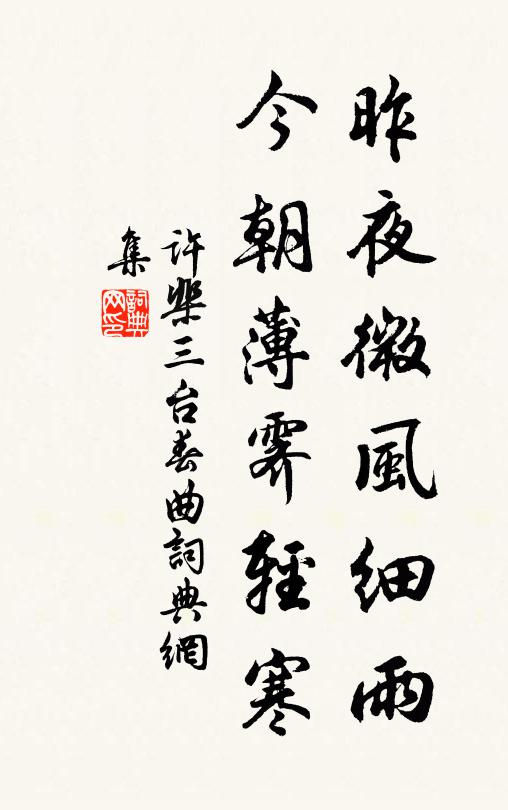 昨夜微風細雨
今朝薄霽輕寒
許棐三台春曲詞典網
集
詞典网印